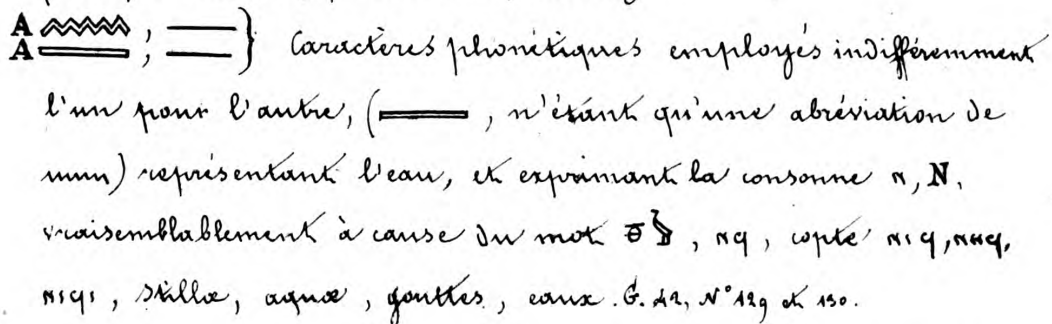 A , } Caractères phonétiques employés indifféremment
A ;
l'un pour l'autre, ( , n'étant qu'une abréviation de
) représentant l'eau, et exprimant la consonne ⲛ, N,
vraisemblablement à cause du mot , ⲛϥ, copte ⲛⲓϥ, ⲛⲏϥ,
ⲛⲓϥⲓ, stillæ, aquæ, gouttes, eaux. G. 42, N° 129 et 130.